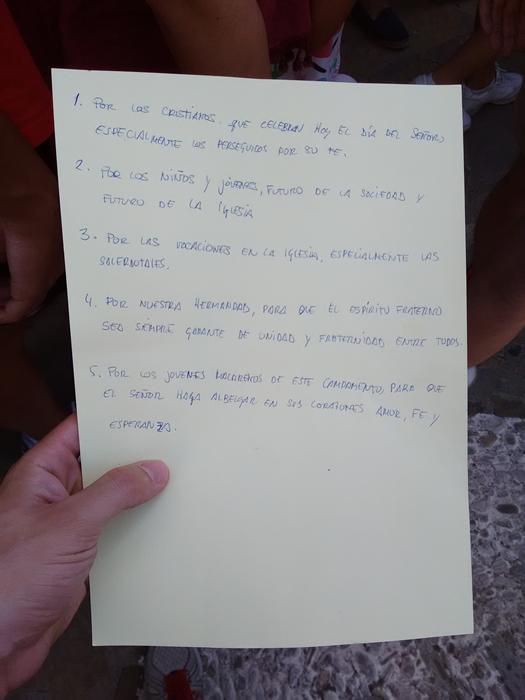 1. POR LOS CRISTIANOS, QUE CELEBRAN HOY EL DÍA DEL SEÑOR,
ESPECIALMENTE LOS PERSEGUIDOS POR SU FE.
2. POR LOS NIÑOS Y JÓVENES, FUTURO DE LA SOCIEDAD Y
FUTURO DE LA IGLESIA
3. POR LAS VOCACIONES EN LA IGLESIA, ESPECIALMENTE LAS
SACERDOTALES.
4. POR NUESTRA HERMANDAD, PARA QUE EL ESPÍRITU FRATERNO
SEA SIEMPRE GARANTE DE UNIDAD Y FRATERNIDAD ENTRE TODOS.
5. POR LOS JOVENES MACARENOS DE ESTE CAMPAMENTO, PARA QUE
EL SEÑOR HAGA ALBERGAR EN SUS CORAZONES AMOR, FE Y
ESPERANZA.